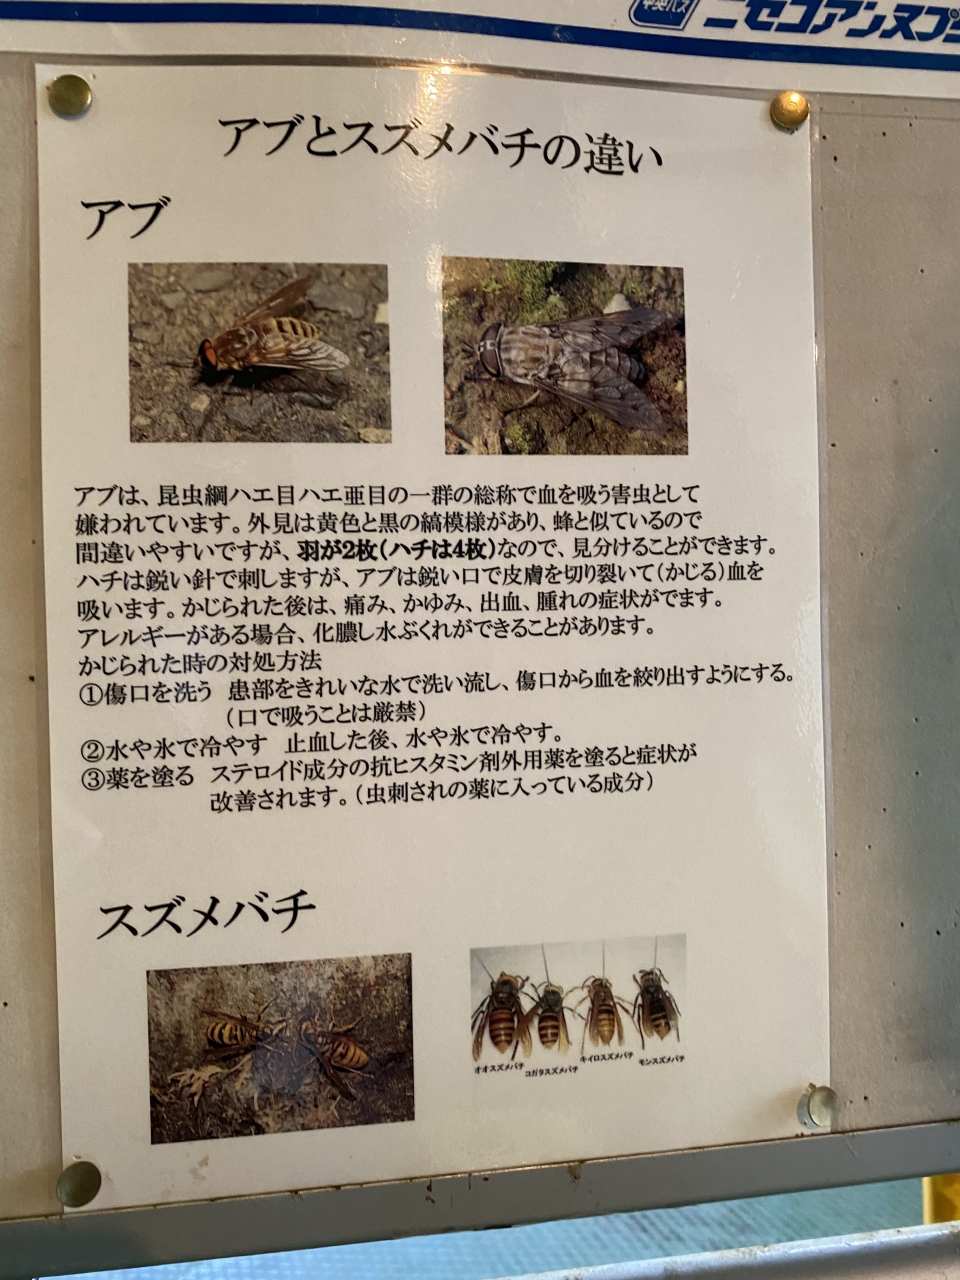 中央バス
ニセコアンヌプ
アブとスズメバチの違い
アブ
アブは、昆虫綱ハエ目ハエ亜目の一群の総称で血を吸う害虫として
嫌われています。外見は黄色と黒の縞模様があり、蜂と似ているので
間違いやすいですが、羽が2枚(ハチは4枚)なので、見分けることができます。
ハチは鋭い針で刺しますが、アブは鋭い口で皮膚を切り裂いて(かじる)血を
吸います。かじられた後は、痛み、かゆみ、出血、腫れの症状がでます。
アレルギーがある場合、化膿し水ぶくれができることがあります。
かじられた時の対処方法
①傷口を洗う 患部をきれいな水で洗い流し、傷口から血を絞り出すようにする。
(口で吸うことは厳禁)
②水や氷で冷やす 止血した後、水や氷で冷やす。
③薬を塗る ステロイド成分の抗ヒスタミン剤外用薬を塗ると症状が
改善されます。(虫刺されの薬に入っている成分)
スズメバチ
オオスズメバチ
コガタスズメバチ
キイロスズメバチ
モンスズメバチ